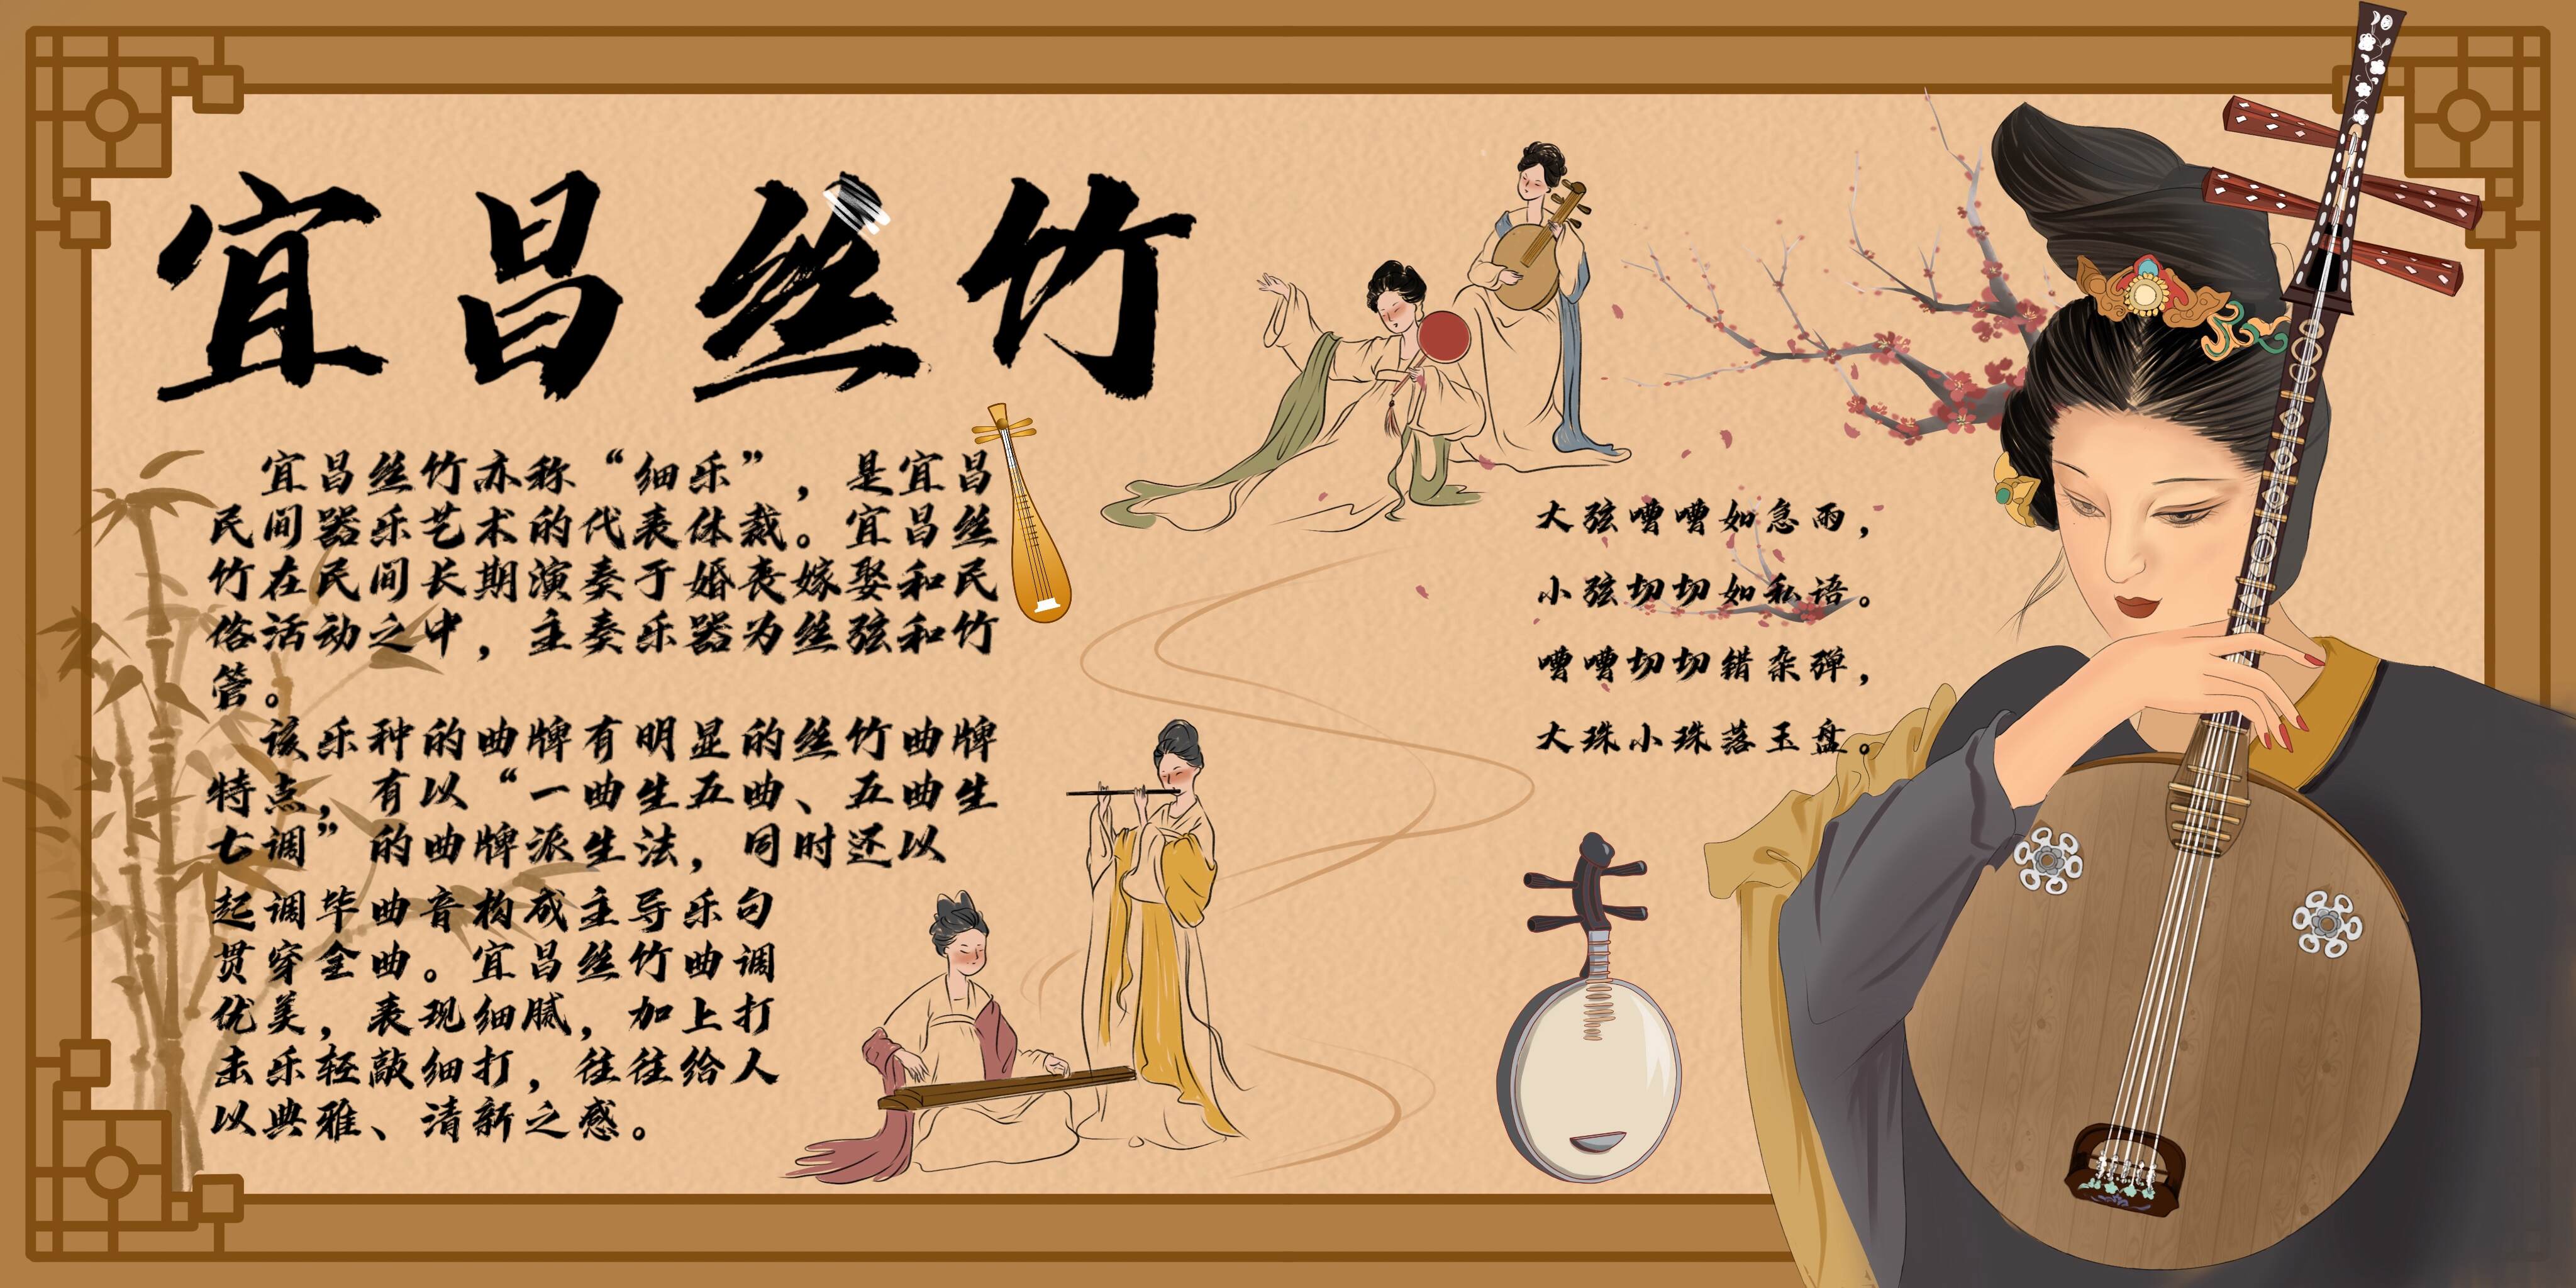 宜昌丝竹
宜昌丝竹亦称“细乐”，是宜昌
民间器乐艺术的代表体裁。宜昌丝
竹在民间长期演奏于婚丧嫁娶和民
俗活动之中，主奏乐器为丝弦和竹
管。
该乐种的曲牌有明显的丝竹曲牌
特点，有以“一曲生五曲、五曲生
七调”的曲牌派生法，同时还以
起调毕曲音构成主导乐句
贯穿全曲。宜昌丝竹曲调
优美，表现细腻，加上打
击乐轻敲细打，往往给人
以典雅、清新之感。
大弦嘈嘈如急雨，
小弦切切如私语。
嘈嘈切切错杂弹，
大珠小珠落玉盘。